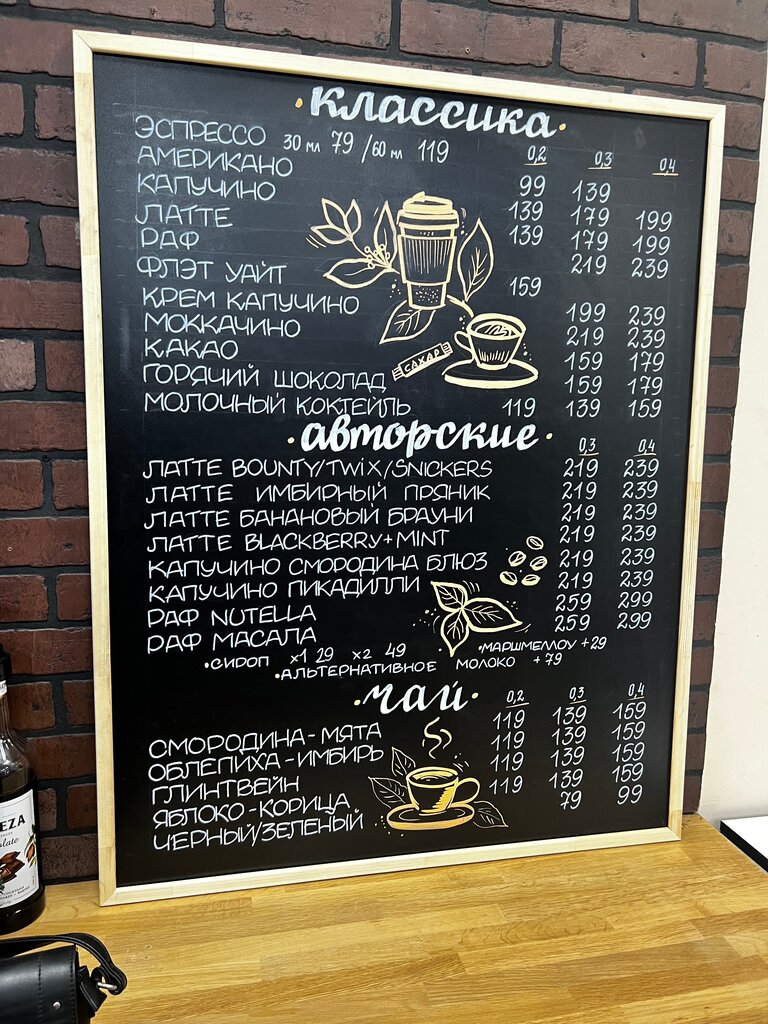 ·классика·
ЭСПРЕССО 30 мл 79 /60 мл 119
0,2 0,3 0,4
АМЕРИКАНО 99 139
КАПУЧИНО 139 179 199
ЛАТТЕ 139 179 199
РАФ 219 239
ФЛЭТ УАЙТ 159
КРЕМ КАПУЧИНО 199 239
МОККАЧИНО 219 239
КАКАО 159 179
ГОРЯЧИЙ ШОКОЛАД 159 179
МОЛОЧНЫЙ КОКТЕЙЛЬ 119 139 159
САХАР
·авторские·
0,3 0,4
ЛАТТЕ BOUNTY/TWIX/SNICKERS 219 239
ЛАТТЕ ИМБИРНЫЙ ПРЯНИК 219 239
ЛАТТЕ БАНАНОВЫЙ БРАУНИ 219 239
ЛАТТЕ BLACKBERRY+MINT 219 239
КАПУЧИНО СМОРОДИНА БЛЮЗ 219 239
КАПУЧИНО ПИКАДИЛЛИ 219 239
РАФ NUTELLA 259 299
РАФ МАСАЛА 259 299
·СИРОП x1 29 x2 49 ·МАРШМЕЛЛОУ +29
·АЛЬТЕРНАТИВНОЕ МОЛОКО +79
·чай·
0,2 0,3 0,4
СМОРОДИНА-МЯТА 119 139 159
ОБЛЕПИХА-ИМБИРЬ 119 139 159
ГЛИНТВЕЙН 119 139 159
ЯБЛОКО-КОРИЦА 119 139 159
ЧЕРНЫЙ/ЗЕЛЕНЫЙ 79 99
EZA